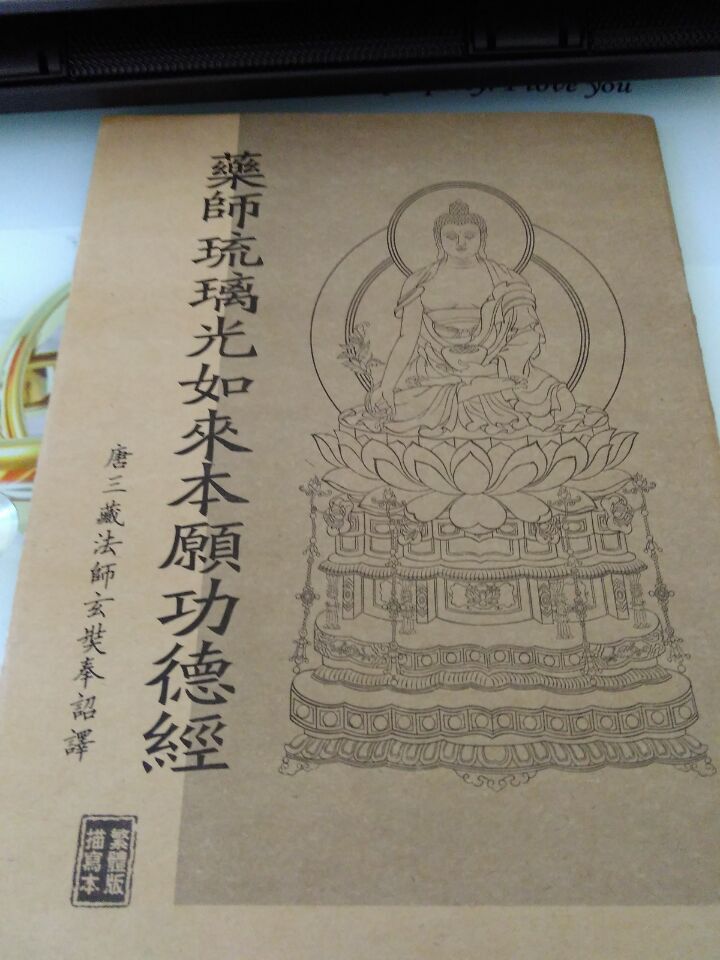 I love you
藥師琉璃光如來本願功德經
唐三藏法師玄奘奉詔譯
繁體版
描寫本